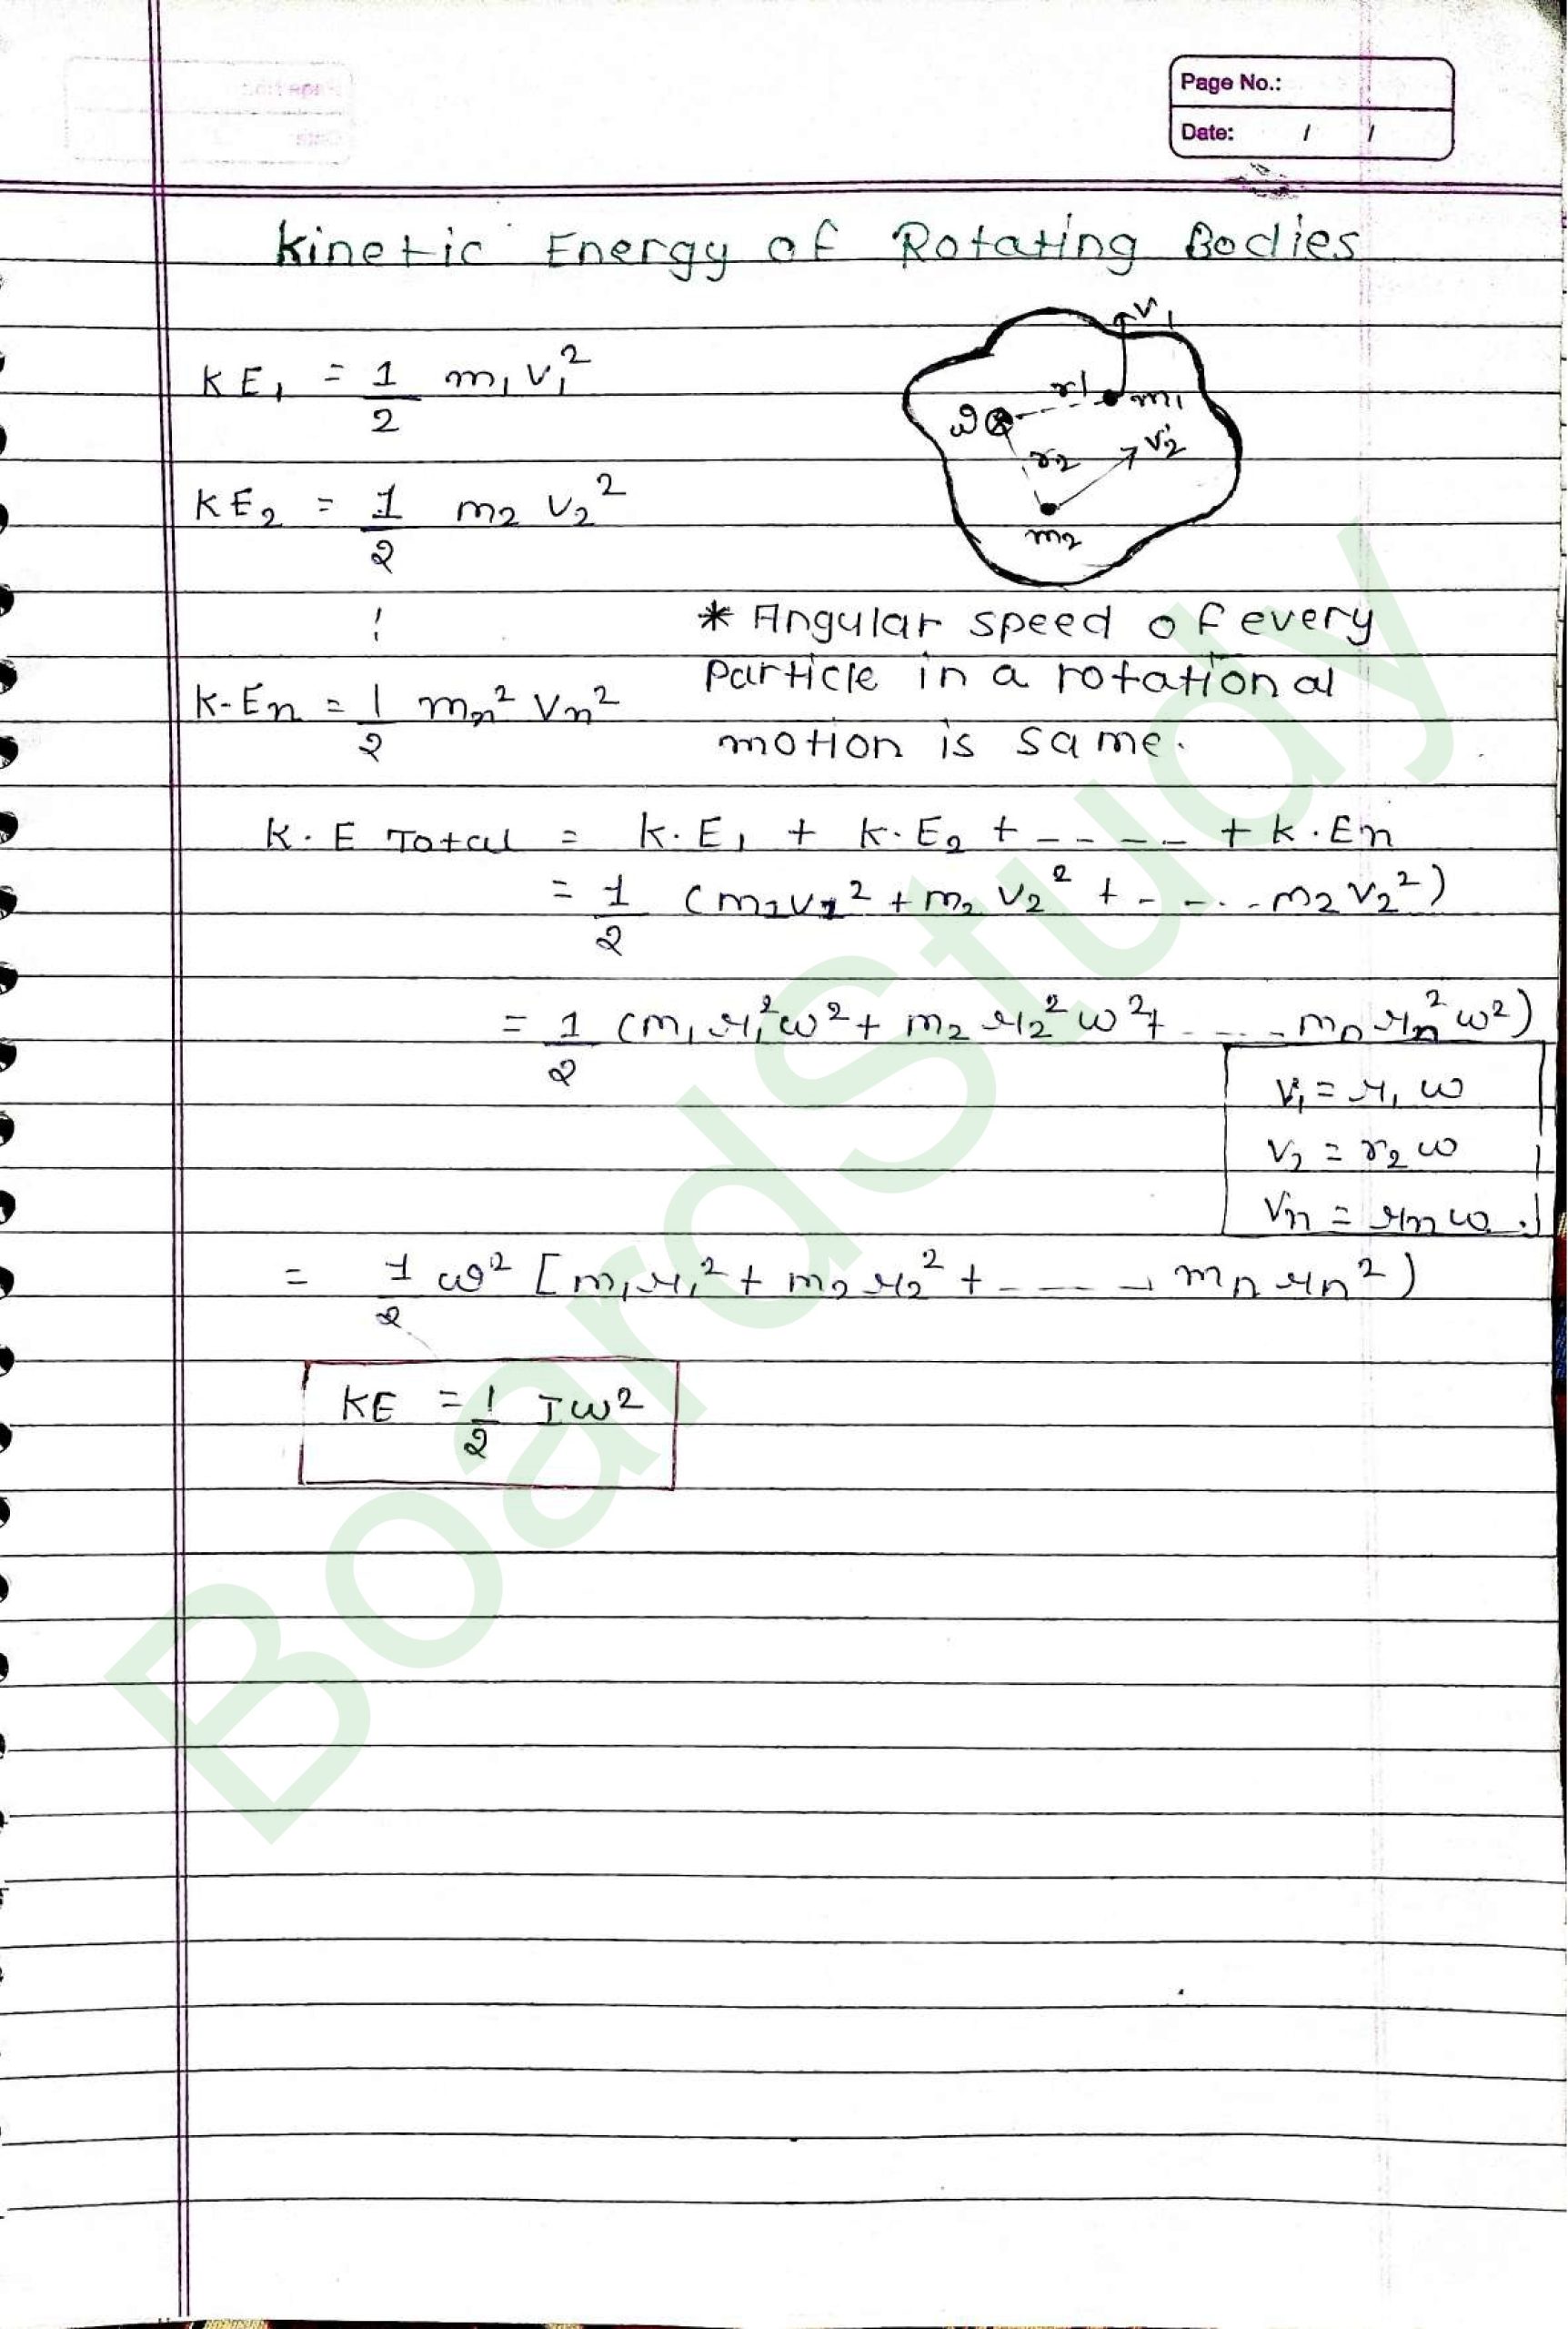 Page No.:
Date: / /
Kinetic Energy of Rotating Bodies
KE₁ = 1/2 m₁ v₁²
v₁
r1 m₁
ω
r₂ v₂
m₂
KE₂ = 1/2 m₂ v₂²
* Angular speed of every
particle in a rotational
motion is same.
K-En = 1/2 mn² vn²
K.E Total = K.E₁ + K.E₂ + ----- + K.En
= 1/2 (m₁v₁² + m₂ v₂² + ----- m₂ v₂²)
= 1/2 (m₁ r₁² ω² + m₂ r₂² ω² + ---- mn rn² ω²)
v₁ = r₁ ω
v₂ = r₂ ω
vn = rn ω
= 1/2 ω² [m₁ r₁² + m₂ r₂² + ----- mn rn²)
KE = 1/2 Iω²
BoardStudy